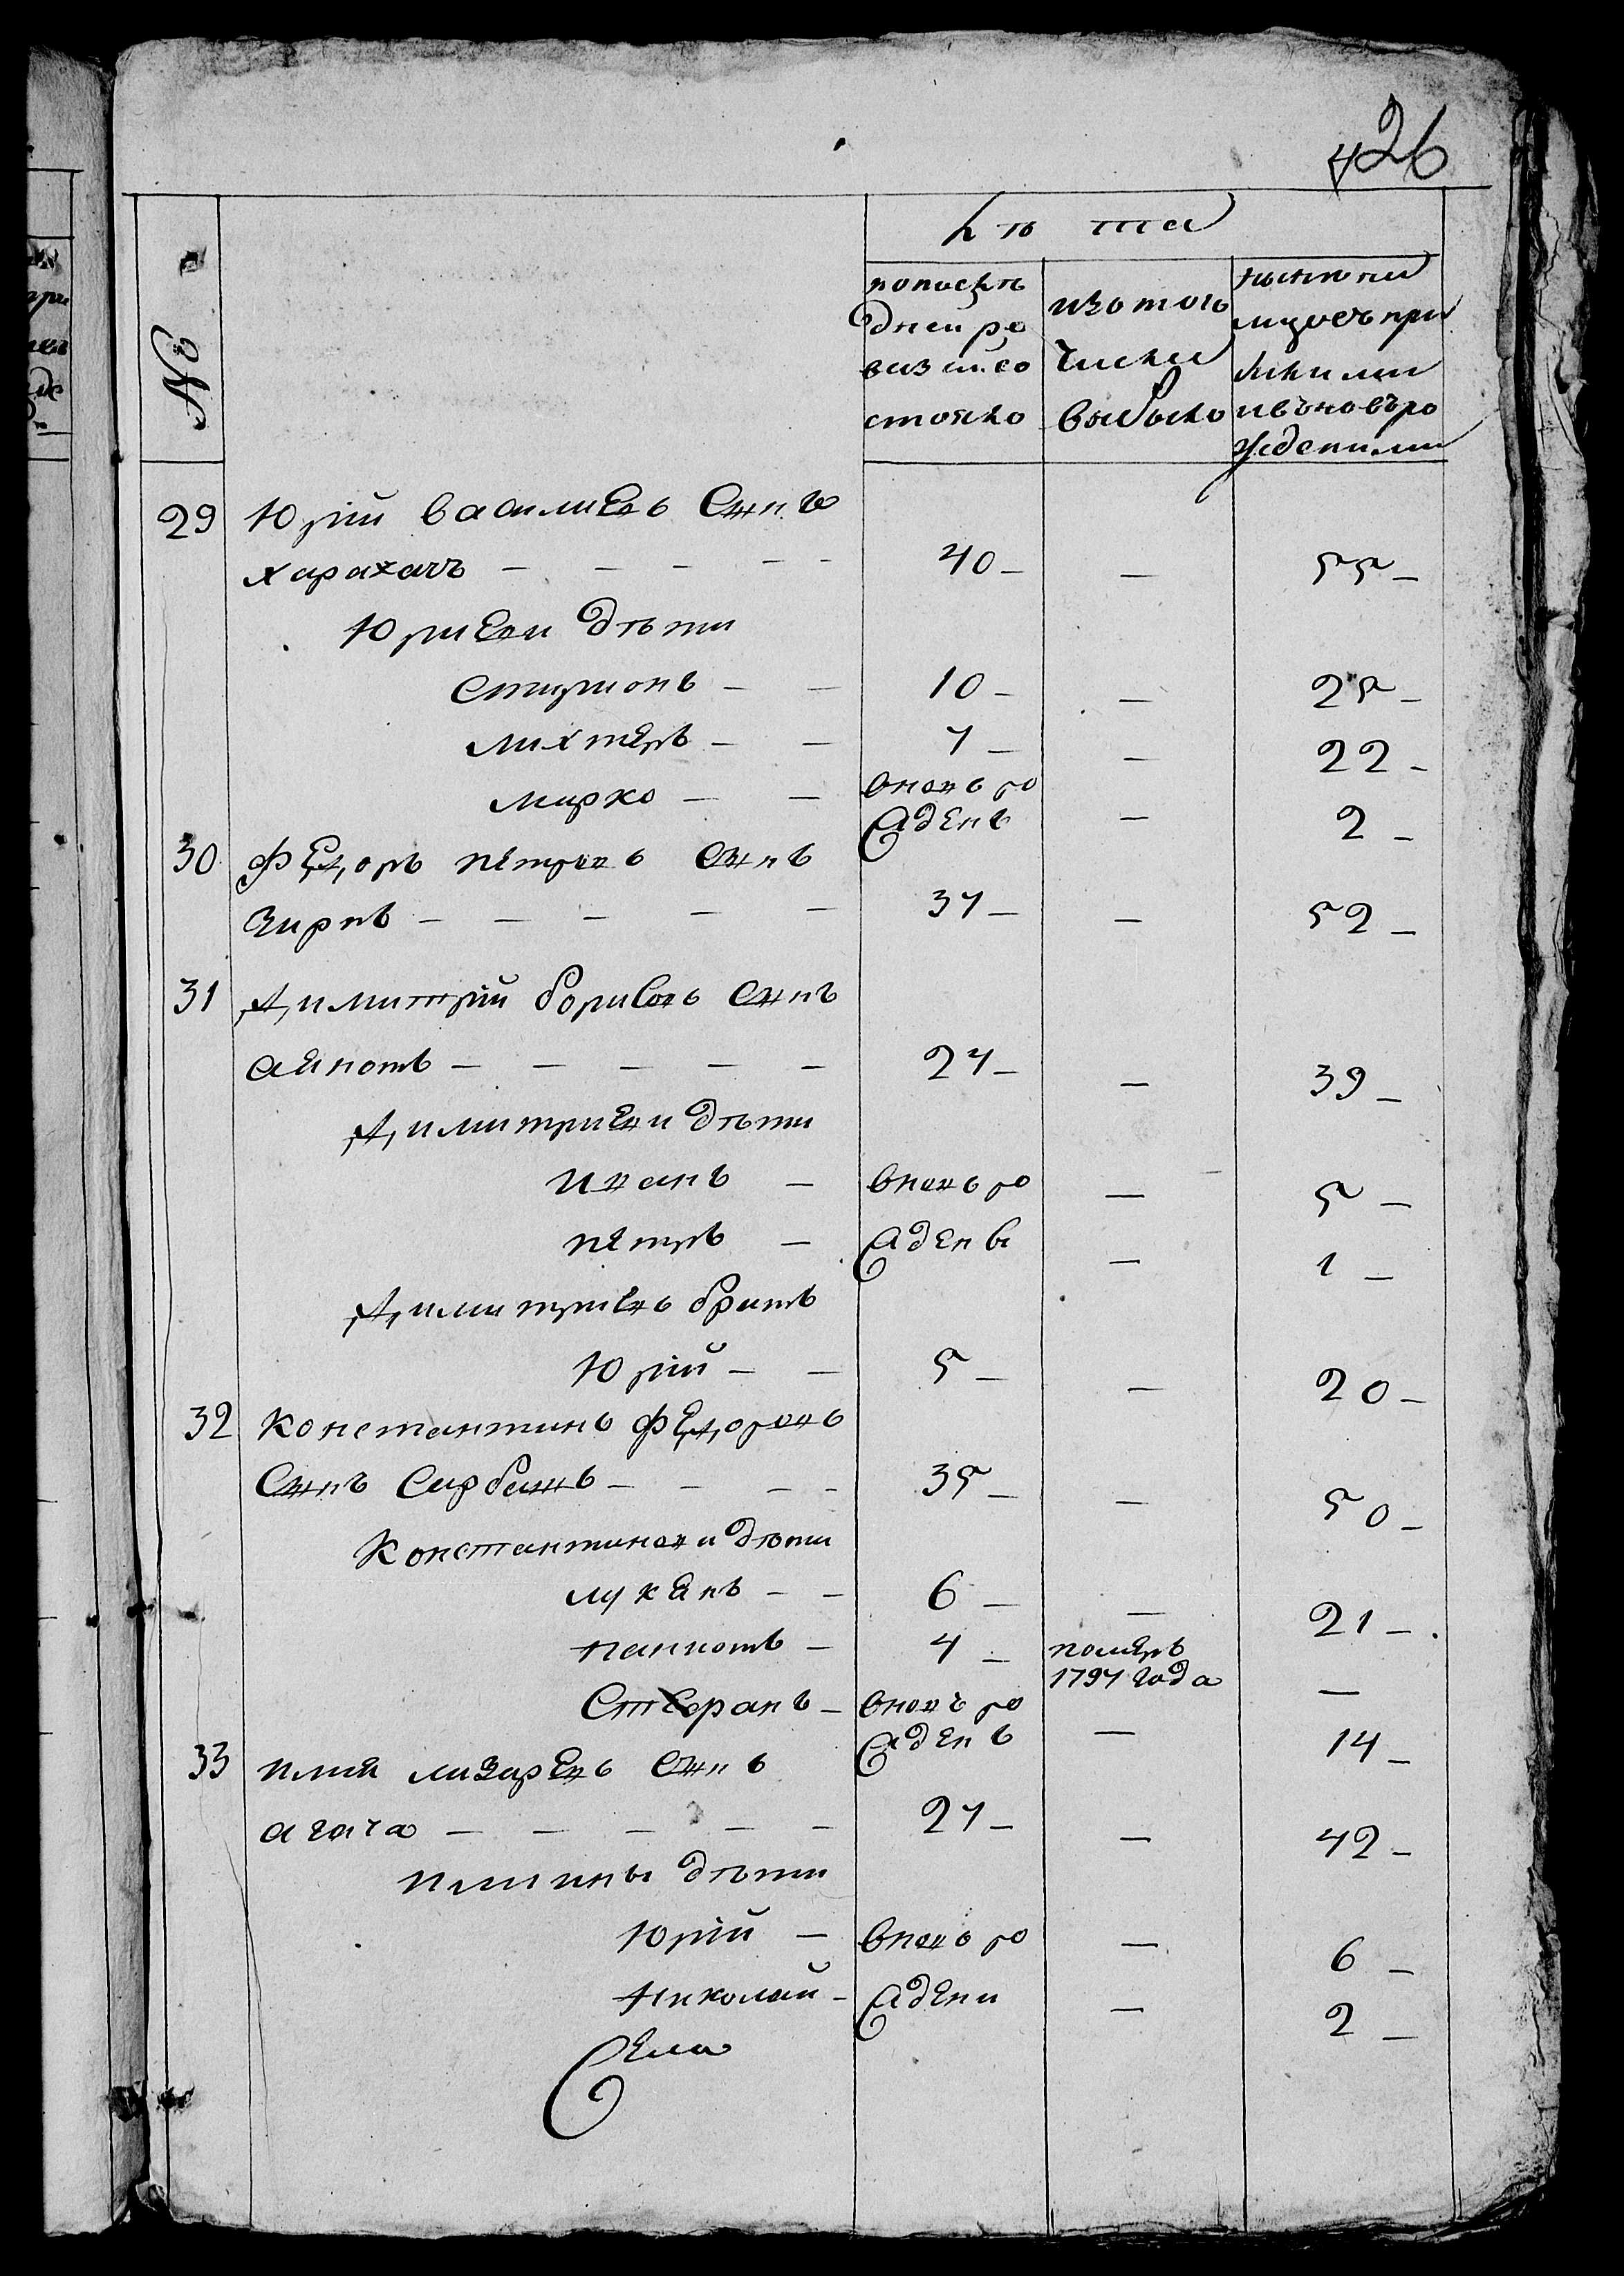 426
№
лѣта
попослѣ
дней ре
визіи со
стояло
изо того
числа
выбыло
нынѣ на
лицо съ при
былыми
и въновь ро
жденными
29 Юрій василиевъ Сынъ
харахачъ — — — — — 40 — — 55 —
Юриеви дѣти
спиридонъ — — 10 — — 25 —
михтеръ — — 7 — — 22 —
марко — — вновъ ро
жденъ — 2 —
30 федоръ петровъ Сынъ
зирнъ — — — — — 37 — — 52 —
31 димитрій борисовъ Сынъ
аянотъ — — — — — 24 — — 39 —
димитриеви дѣти
иванъ — вновъ ро — 5 —
петръ — жденъ — 1 —
димитриевъ братъ
Юрій — — 5 — — 20 —
32 константинъ федоровъ
Сынъ Сарбашъ — — — — 35 — — 50 —
Константинови дѣти
лукянъ — — 6 — — 21 —
паниотъ — 4 — помѣръ
1797 года —
Стефанъ — вновъ ро
жденъ — 14 —
33 илия лазаревъ Сынъ
агача — — — — — 27 — — 42 —
илиины дѣти
Юрій — вновъ ро — 6 —
николай — ждени — 2 —
Села